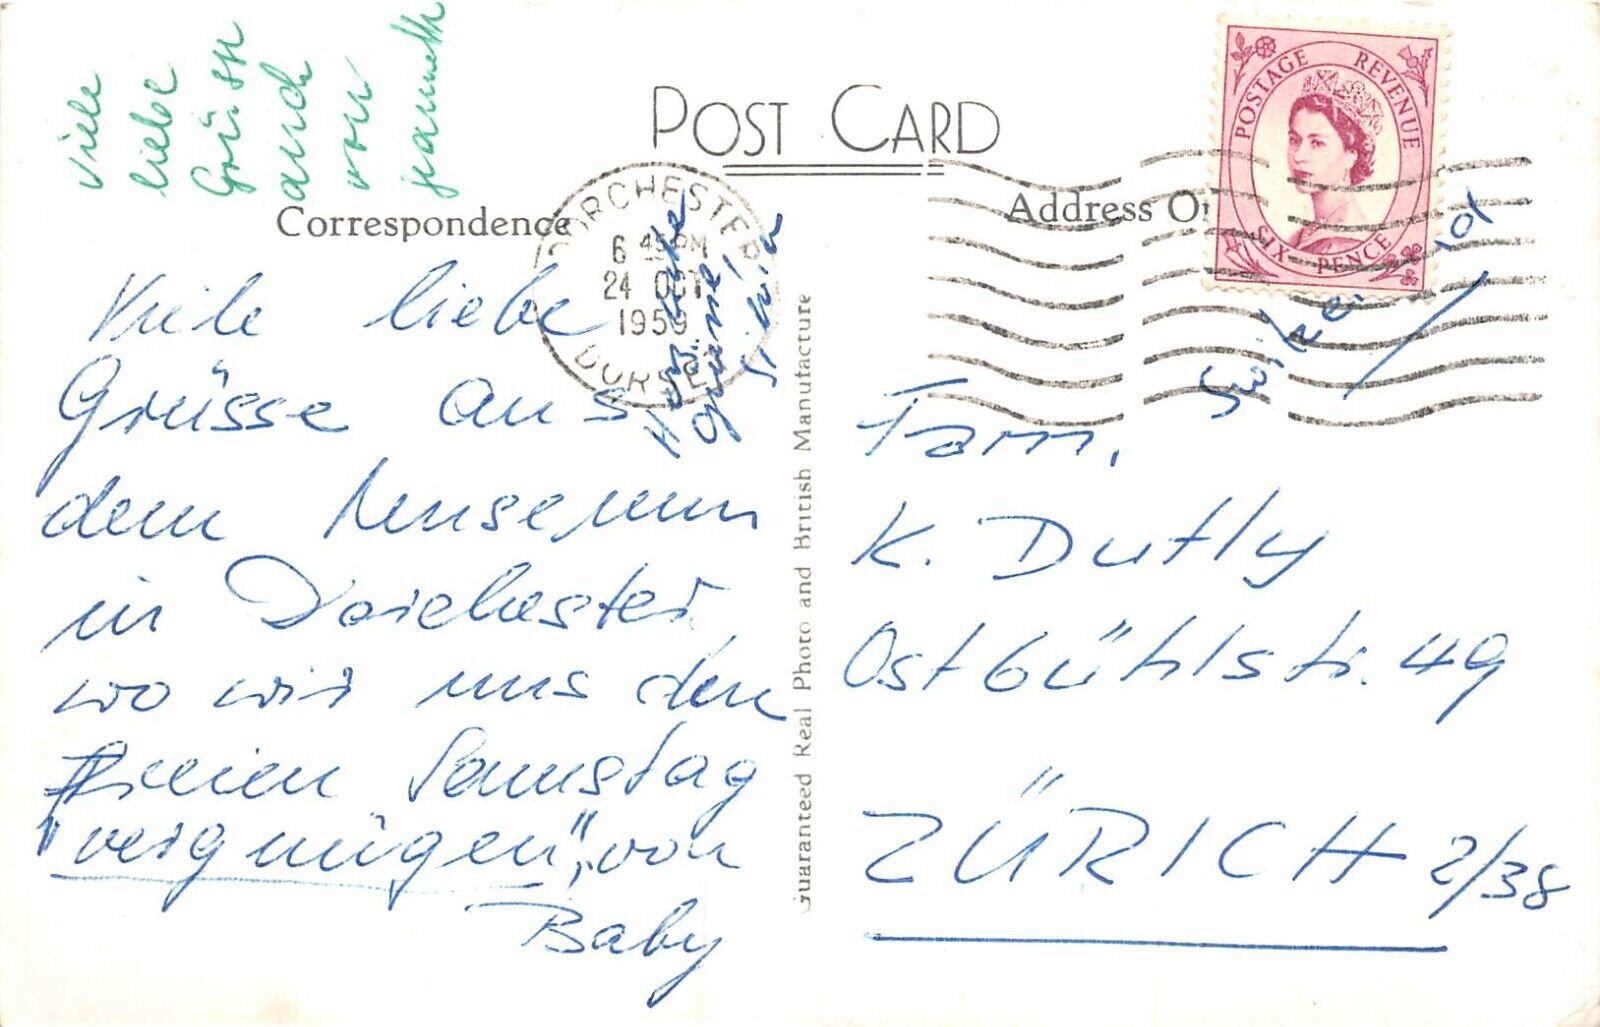 Viele
liebe
Grüsse
auch
von
Jeanneth
POST CARD
Correspondence
Address On
DORCHESTER
6 45 PM
24 OCT
1959
DORSET
POSTAGE REVENUE
SIX PENCE
Herzliche
Grüsse,
Silvia
Viele liebe
Grüsse aus
dem Museum
in Dorchester,
wo wir uns den
freien Samstag
"vergnügen", von
Baby
Guaranteed Real Photo and British Manufacture
Fam.
K. Dutly
Ostbühlstr. 49
ZÜRICH 2/38